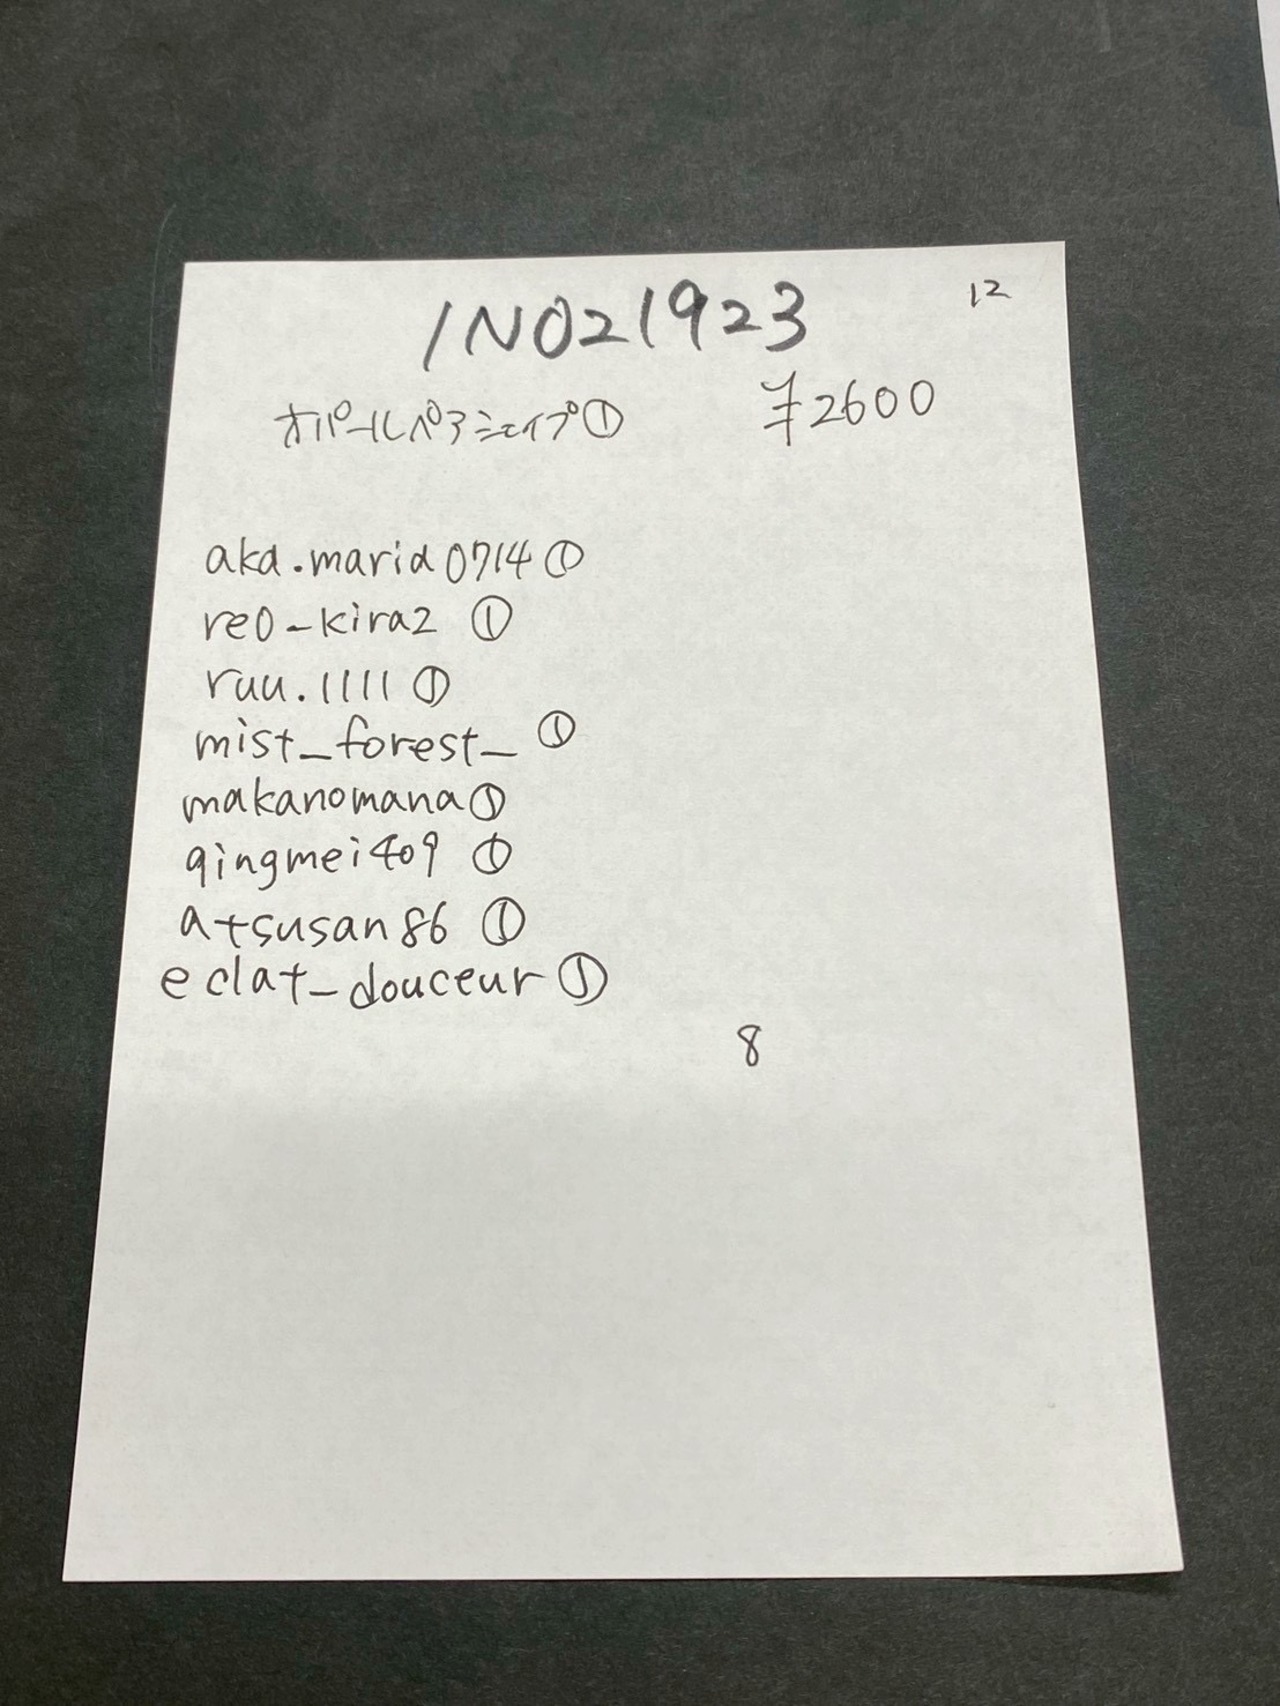 12
INO21923
オパールペアシェイプ①
¥2600
aka.maria0714①
re0-kira2 ①
ruu.1111①
mist_forest_ ①
makanomana①
qingmei409 ①
atsusan86 ①
eclat_douceur①
8